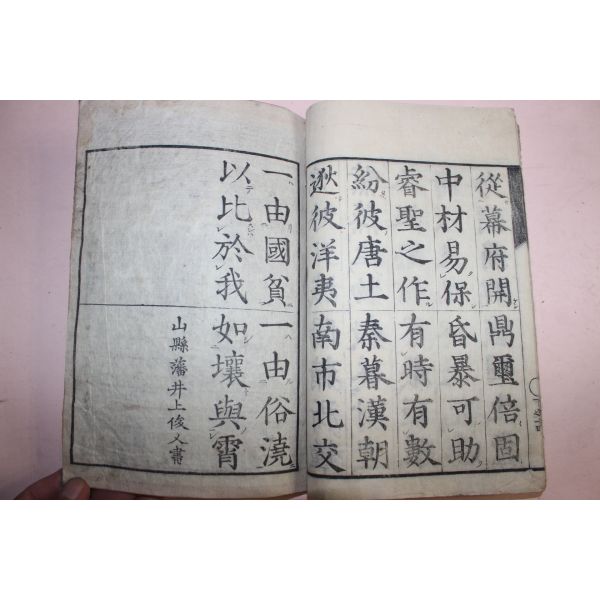 從幕府開鼎璽倍固
中材易保昏暴可助
睿聖之作有時有數
紛彼唐土秦暮漢朝
逖彼洋夷南市北交
一由國貧一由俗澆
以比於我如壤與霄
山縣藩井上俊乂書